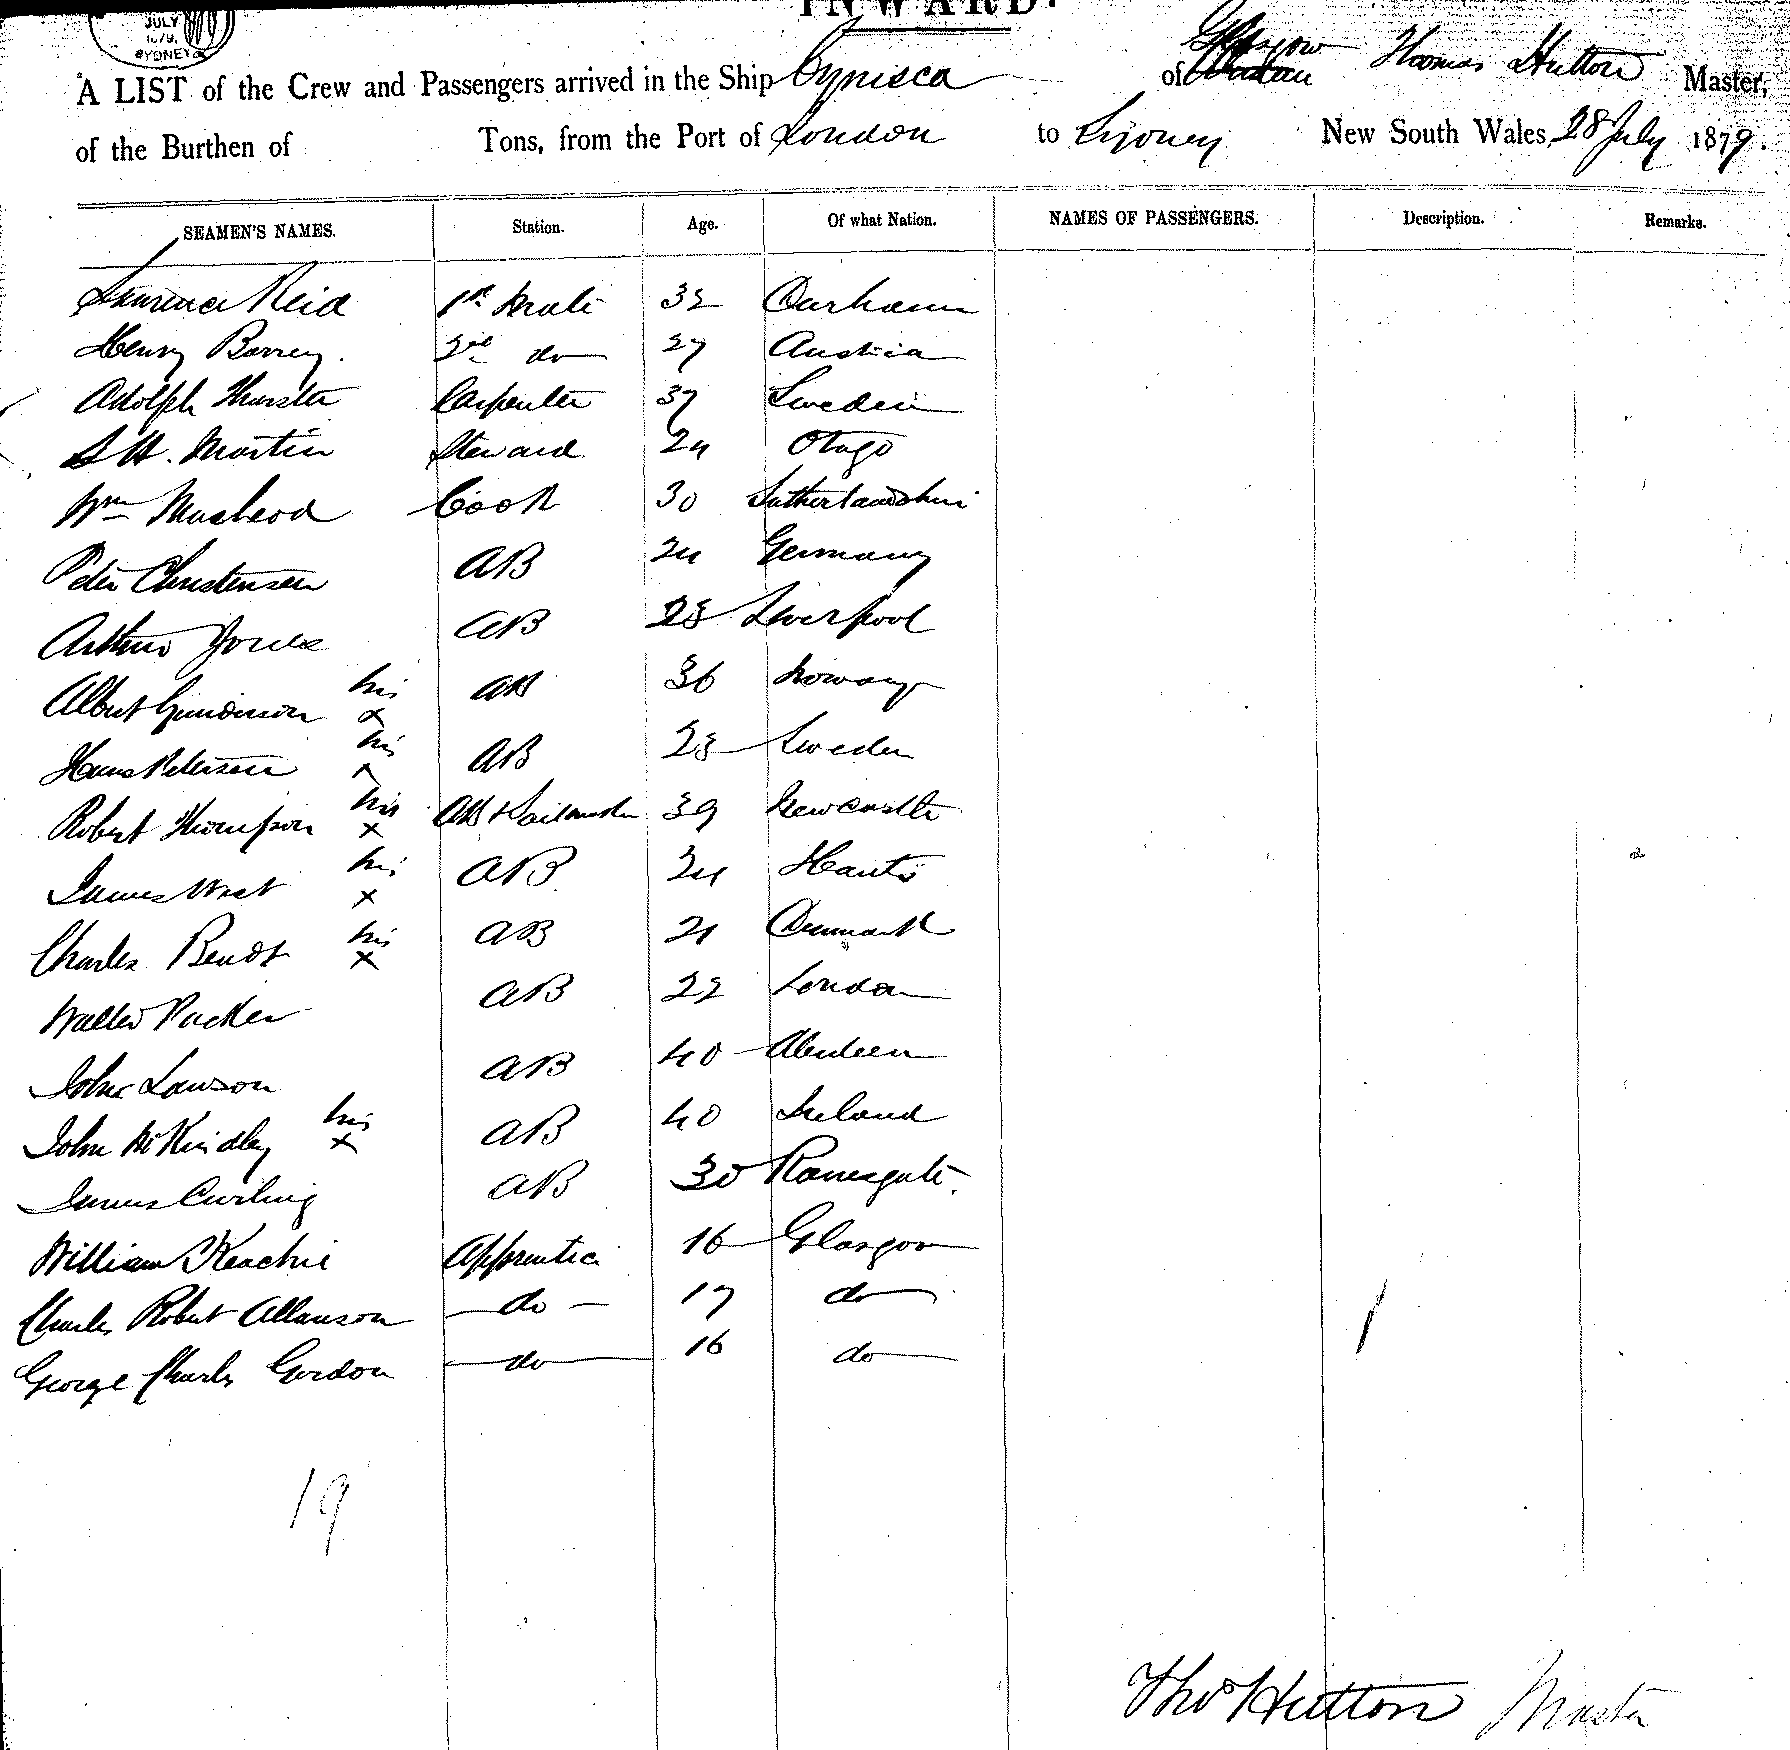 INWARD.
JULY
1879.
SYDNEY
A LIST of the Crew and Passengers arrived in the Ship Cynisca of Glasgow Thomas Hutton Master,
of the Burthen of Tons, from the Port of London to Sydney New South Wales, 28 July 1879.
SEAMEN'S NAMES. Station. Age. Of what Nation. NAMES OF PASSENGERS. Description. Remarks.
Laurence Reid 1st Mate 32 Durham
Henry 2nd do 27 Austria
Adolph Carpenter 37 Sweden
S H. Martin Steward 24 Otago
Wm MacLeod Cook 30 Sutherlandshire
Peter Christensen AB 24 Germany
Arthur Jones AB 28 Liverpool
Albert his x AB 36 Norway
Hans Petersen his x AB 28 Sweden
Robert Thompson his x AB & Sailmaker 39 Newcastle
James West his x AB 24 Hants
Charles Bendt his x AB 21 Denmark
Walter Packer AB 22 London
John Lawson AB 40 Aberdeen
John McKindley his x AB 40 Ireland
James Curling AB 30 Ramsgate.
William Keachie Apprentice 16 Glasgow
Charles Robert Allanson do 17 do
George Charles Gordon do 16 do
19
Thos Hutton Master